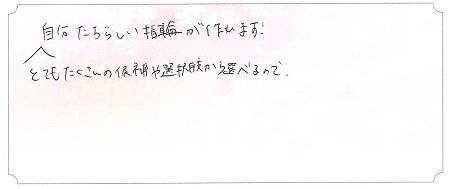 自分たちらしい指輪が作れます!
とてもたくさんの候補や選択肢から選べるので、